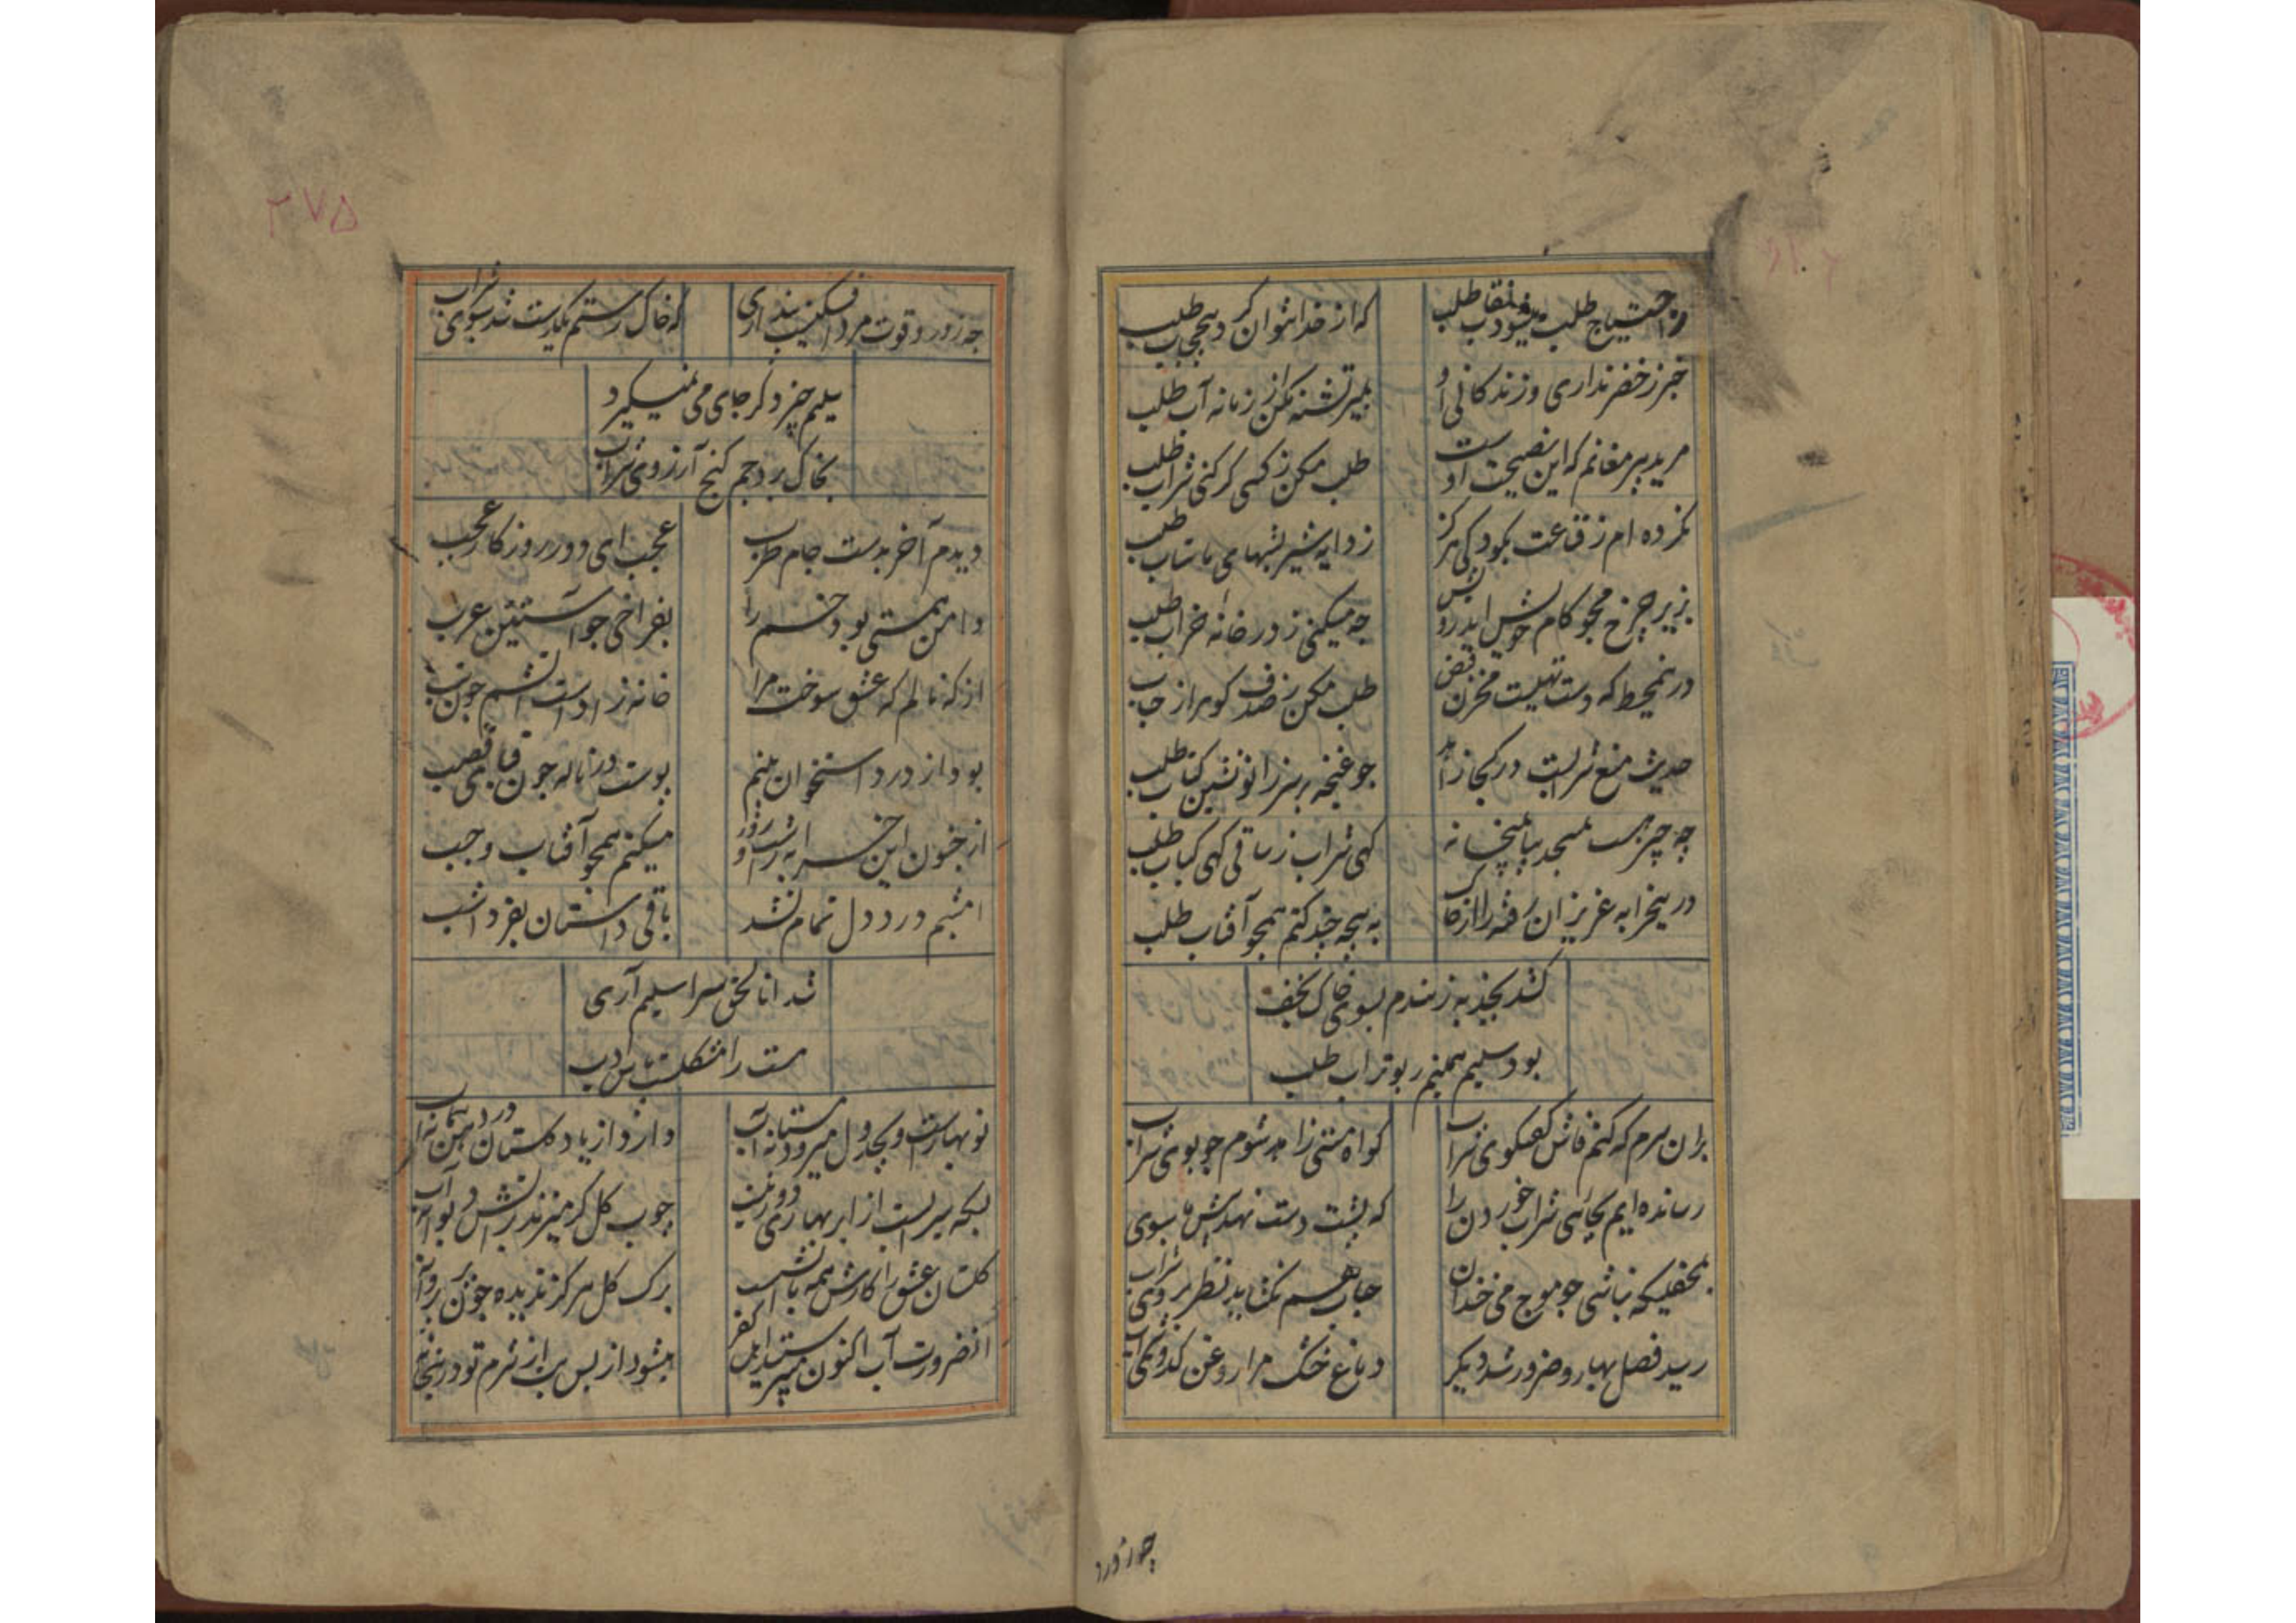 ز احتیاج طلب میشود نقاب طلب
که از خدا نتوان کرد بیحجاب طلب
خبر ز خضر نداری و زندکانی او
بمیر تشنه مکن از زمانه آب طلب
مرید پیر مغانم که این نصیحت اوست
طلب مکن ز کسی کر کنی شراب طلب
نکرده ام ز قناعت بکودکی هرکز
ز دایه شیر بشبهای ماهتاب طلب
بزیر چرخ مجو کام خویش ای درویش
چه میکنی ز در خانه خراب طلب
درین محیط که دست تهیست مخزن فیض
طلب مکن ز صدف کوهر از حباب طلب
حدیث منع شرابست در کجا زاهد
چو غنچه بر سر زانو نشین کتاب طلب
چه چیز هست بمسجد بیا بمیخانه
کهی شراب ز ساقی کهی کباب طلب
درین خرابه عزیزان رفته را از خاک
به پنجه چند کنم همچو آفتاب طلب
کشد بجذبه ز هندم بسوی خاک نجف
بود سلیم همینم ز بوتراب طلب
بران سرم که کنم فاش کفتکوی شراب
کواه مستی زاهد شوم چو بوی شراب
رسانده ایم بجائی شراب خوردن را
که پشت دست نهد پیش ما سبوی شراب
بمحفلیکه نباشی چو موج می خندان
حباب هم نکشاید نظر بروی شراب
رسید فصل بهار و ضرور شد دیکر
دماغ خشک مرا روغن کدوی شراب
چه زور
۲۷۵
چه زور و قوت مرد افکنیست پنداری
که خاک رستم یکدست شد سبوی شراب
سلیم چیز دکر جای می نمیکیرد
بخاک برد جم کنج آرزوی شراب
دیدم آخر بدست جام طرب
عجب ای دور روزکار عجب
دامن همتی بود خم را
بفراخی چو آستین عرب
از که نالم که عشق سوخت مرا
خانه زادست آتشم چون تب
بود از درد استخوان بتنم
پوست در ناله چون قبای قصب
از خون این خرابه را شب و روز
میکنم همچو آفتاب وجب
امشبم درد دل تمام نشد
باقی داستان بفردا شب
شد انا لحق سرا سلیم آری
مست را مشکلست پاس ادب
نو بهارست و بجدول میرود مستانه آب
دارد از یاد کلستان در دهن پیمانه آب
بسکه سیرابست از ابر بهاری دور نیست
چوب کل کر میزند بر آتش دیوانه آب
کلستان عشق را کارش همه با آتشست
برک کل هرکز ندیده چون پر پروانه آب
از ضرورت آب اکنون میپرستد اهل کفر
میشود از بس بت از شرم تو در بتخانه آب